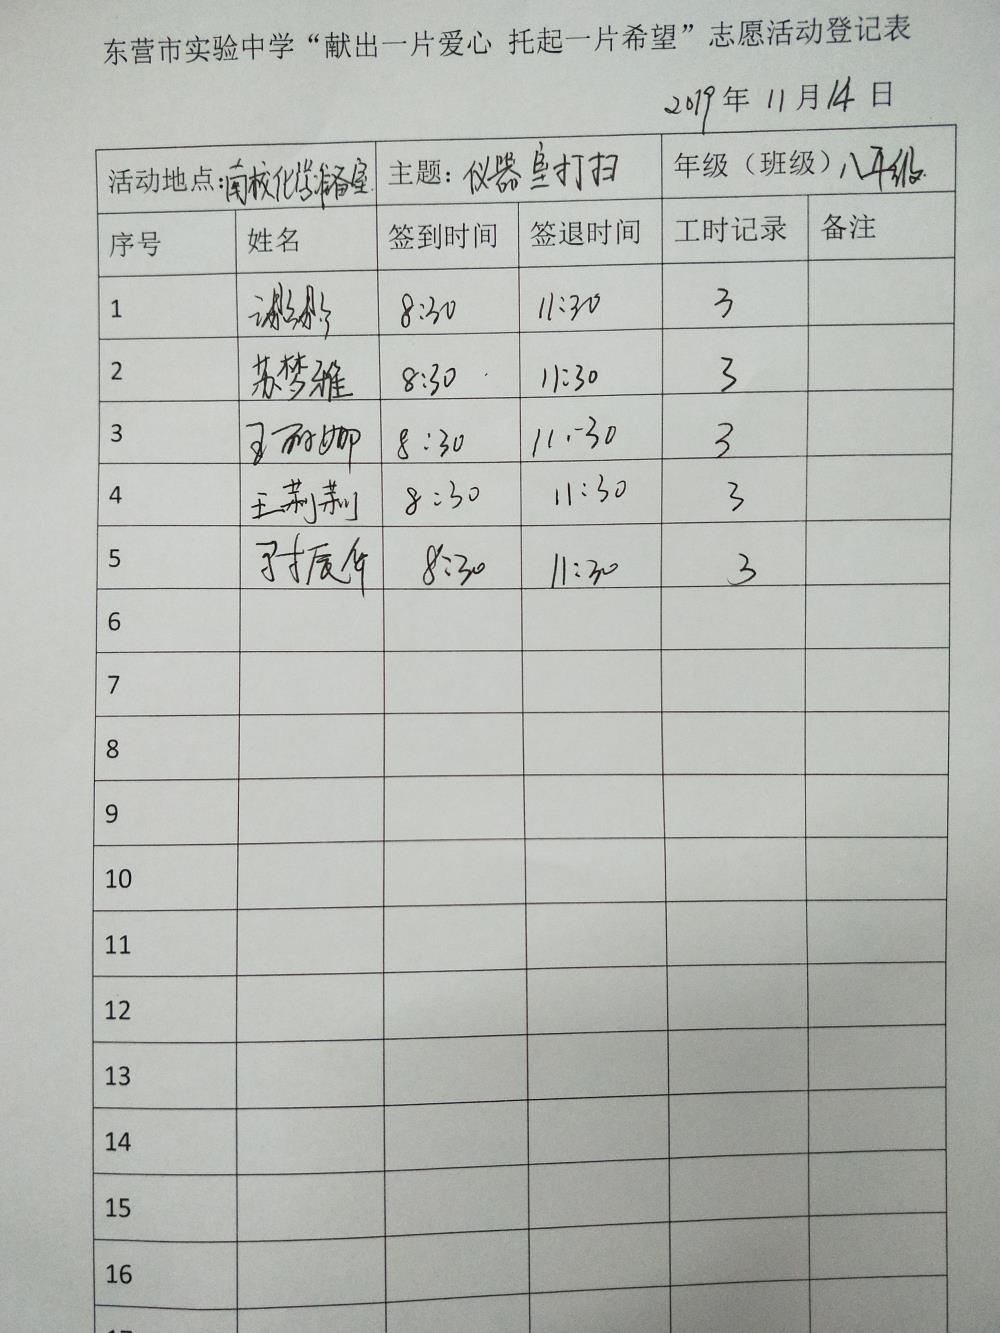 东营市实验中学“献出一片爱心 托起一片希望”志愿活动登记表
2019年 11月14日
活动地点:南校化学准备室 主题:仪器室打扫 年级（班级）八年级
序号 姓名 签到时间 签退时间 工时记录 备注
1 8:30 11:30 3
2 苏梦雅 8:30 11:30 3
3 王丽娜 8:30 11:30 3
4 王荆荆 8:30 11:30 3
5 8:30 11:30 3
6
7
8
9
10
11
12
13
14
15
16
17